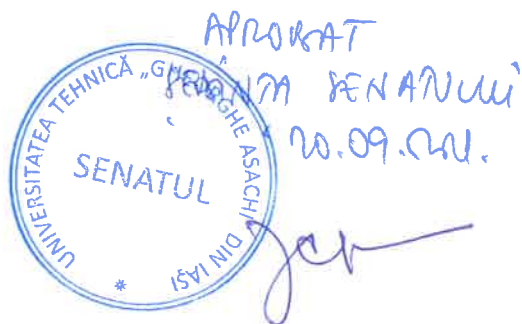 APROBAT
ȘEDINȚA SENATULUI
UNIVERSITATEA TEHNICĂ „GHEORGHE ASACHI" DIN IAȘI
SENATUL
*